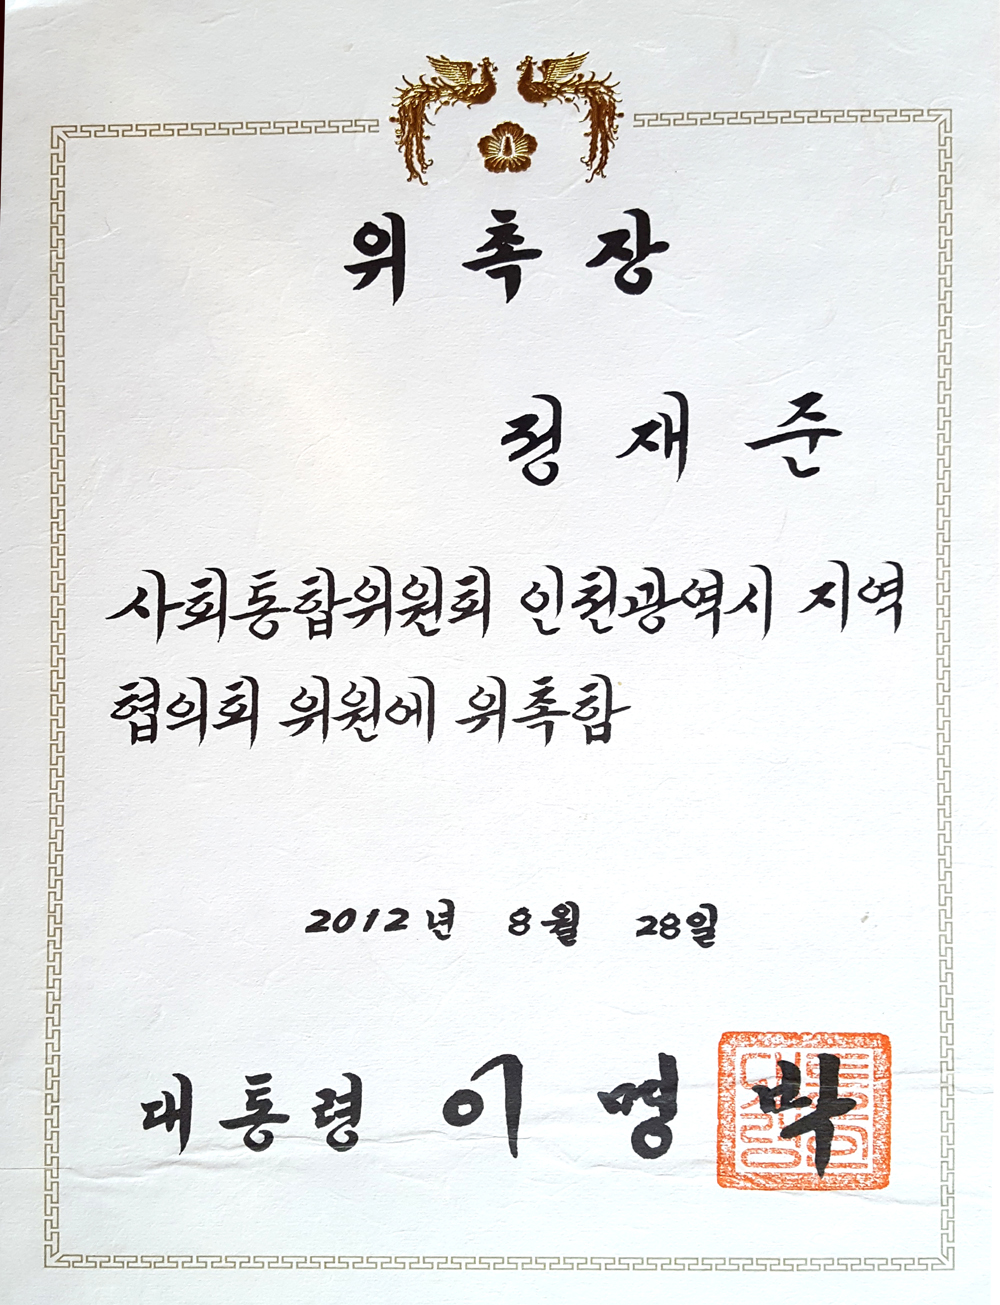 위 촉 장
정 재 준
사회통합위원회 인천광역시 지역
협의회 위원에 위촉함
2012년 8월 28일
대통령 이명박